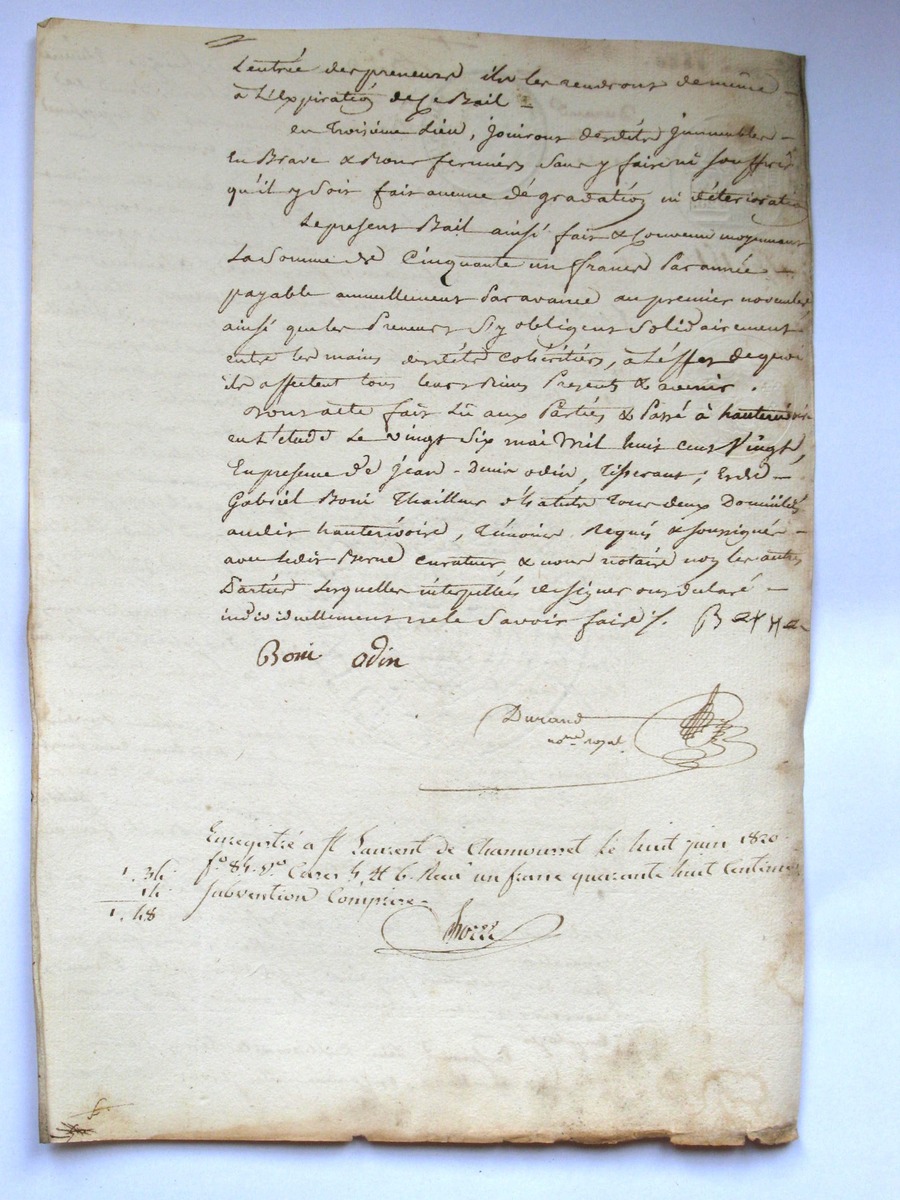 L'entrée des preneurs ils les rendront de même
à L'Expiration de Ce Bail
en troisième Lieu, jouiront desdits immeubles
En Brave & Bons fermiers Sans y faire ni Souffrir
qu'il y Soit fait aucune dégradation ni détérioration
Le present Bail ainsi fait & Convenu moyennant
La Somme de Cinquante un francs Par année
payable annuellement Par avance au premier novembre
ainsi que les Preneurs S'y obligent Solidairement
entre les mains desdits Cohéritiers, à L'effet de quoi
ils affectent tous leurs Biens Presents & avenir.
Dont acte fait Lû aux Parties & Passé à hauterivoire
en L'etude Le Vingt Six mai Mil huit cent Vingt,
En presence de jean-denis odin, Tisserant, Et de
Gabriel Boni Thailleur d'habits Tous deux Domiciliés
audit hauterivoire, Témoins Requis & Soussignés
avec Ledit curateur, & nous notaire non les autres
Parties Lesquelles interpellées de signer ont declaré
individuellement ne le Savoir faire
Boni odin
Durand
no.re royal
Enregistré a St Laurent de Chamousset le huit juin 1820
fo 84 Vo Cases 4, et 6. Recu un franc quarante huit Centimes
Subvention Comprise
1. 34
14
1. 48